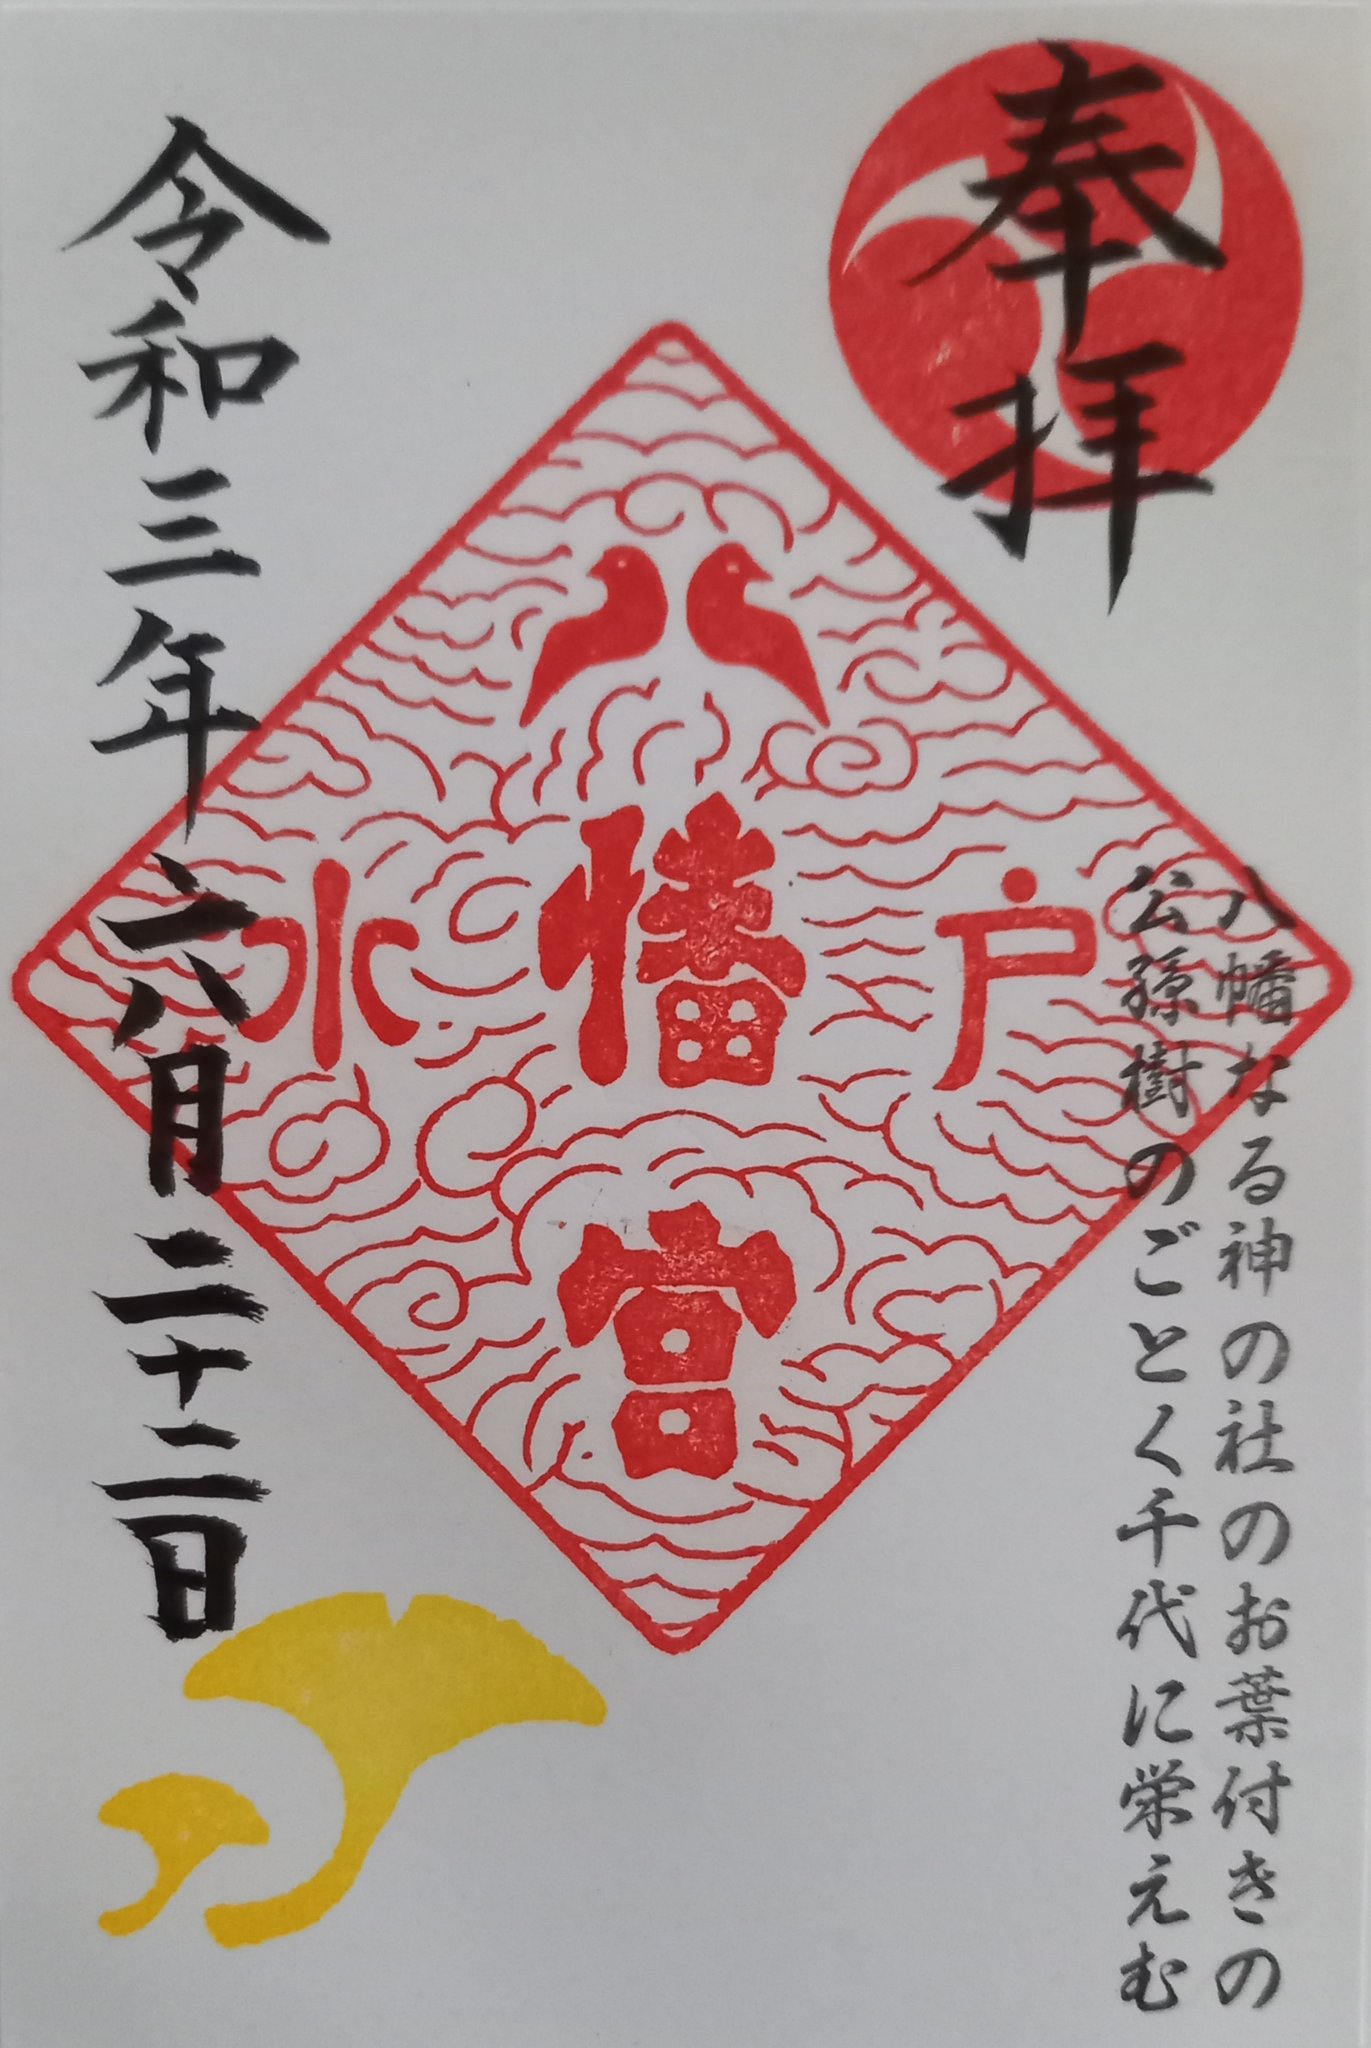 奉拝
八幡なる神の社のお葉付きの
公孫樹のごとく千代に栄えむ
水戸
八幡宮
令和三年六月二十二日